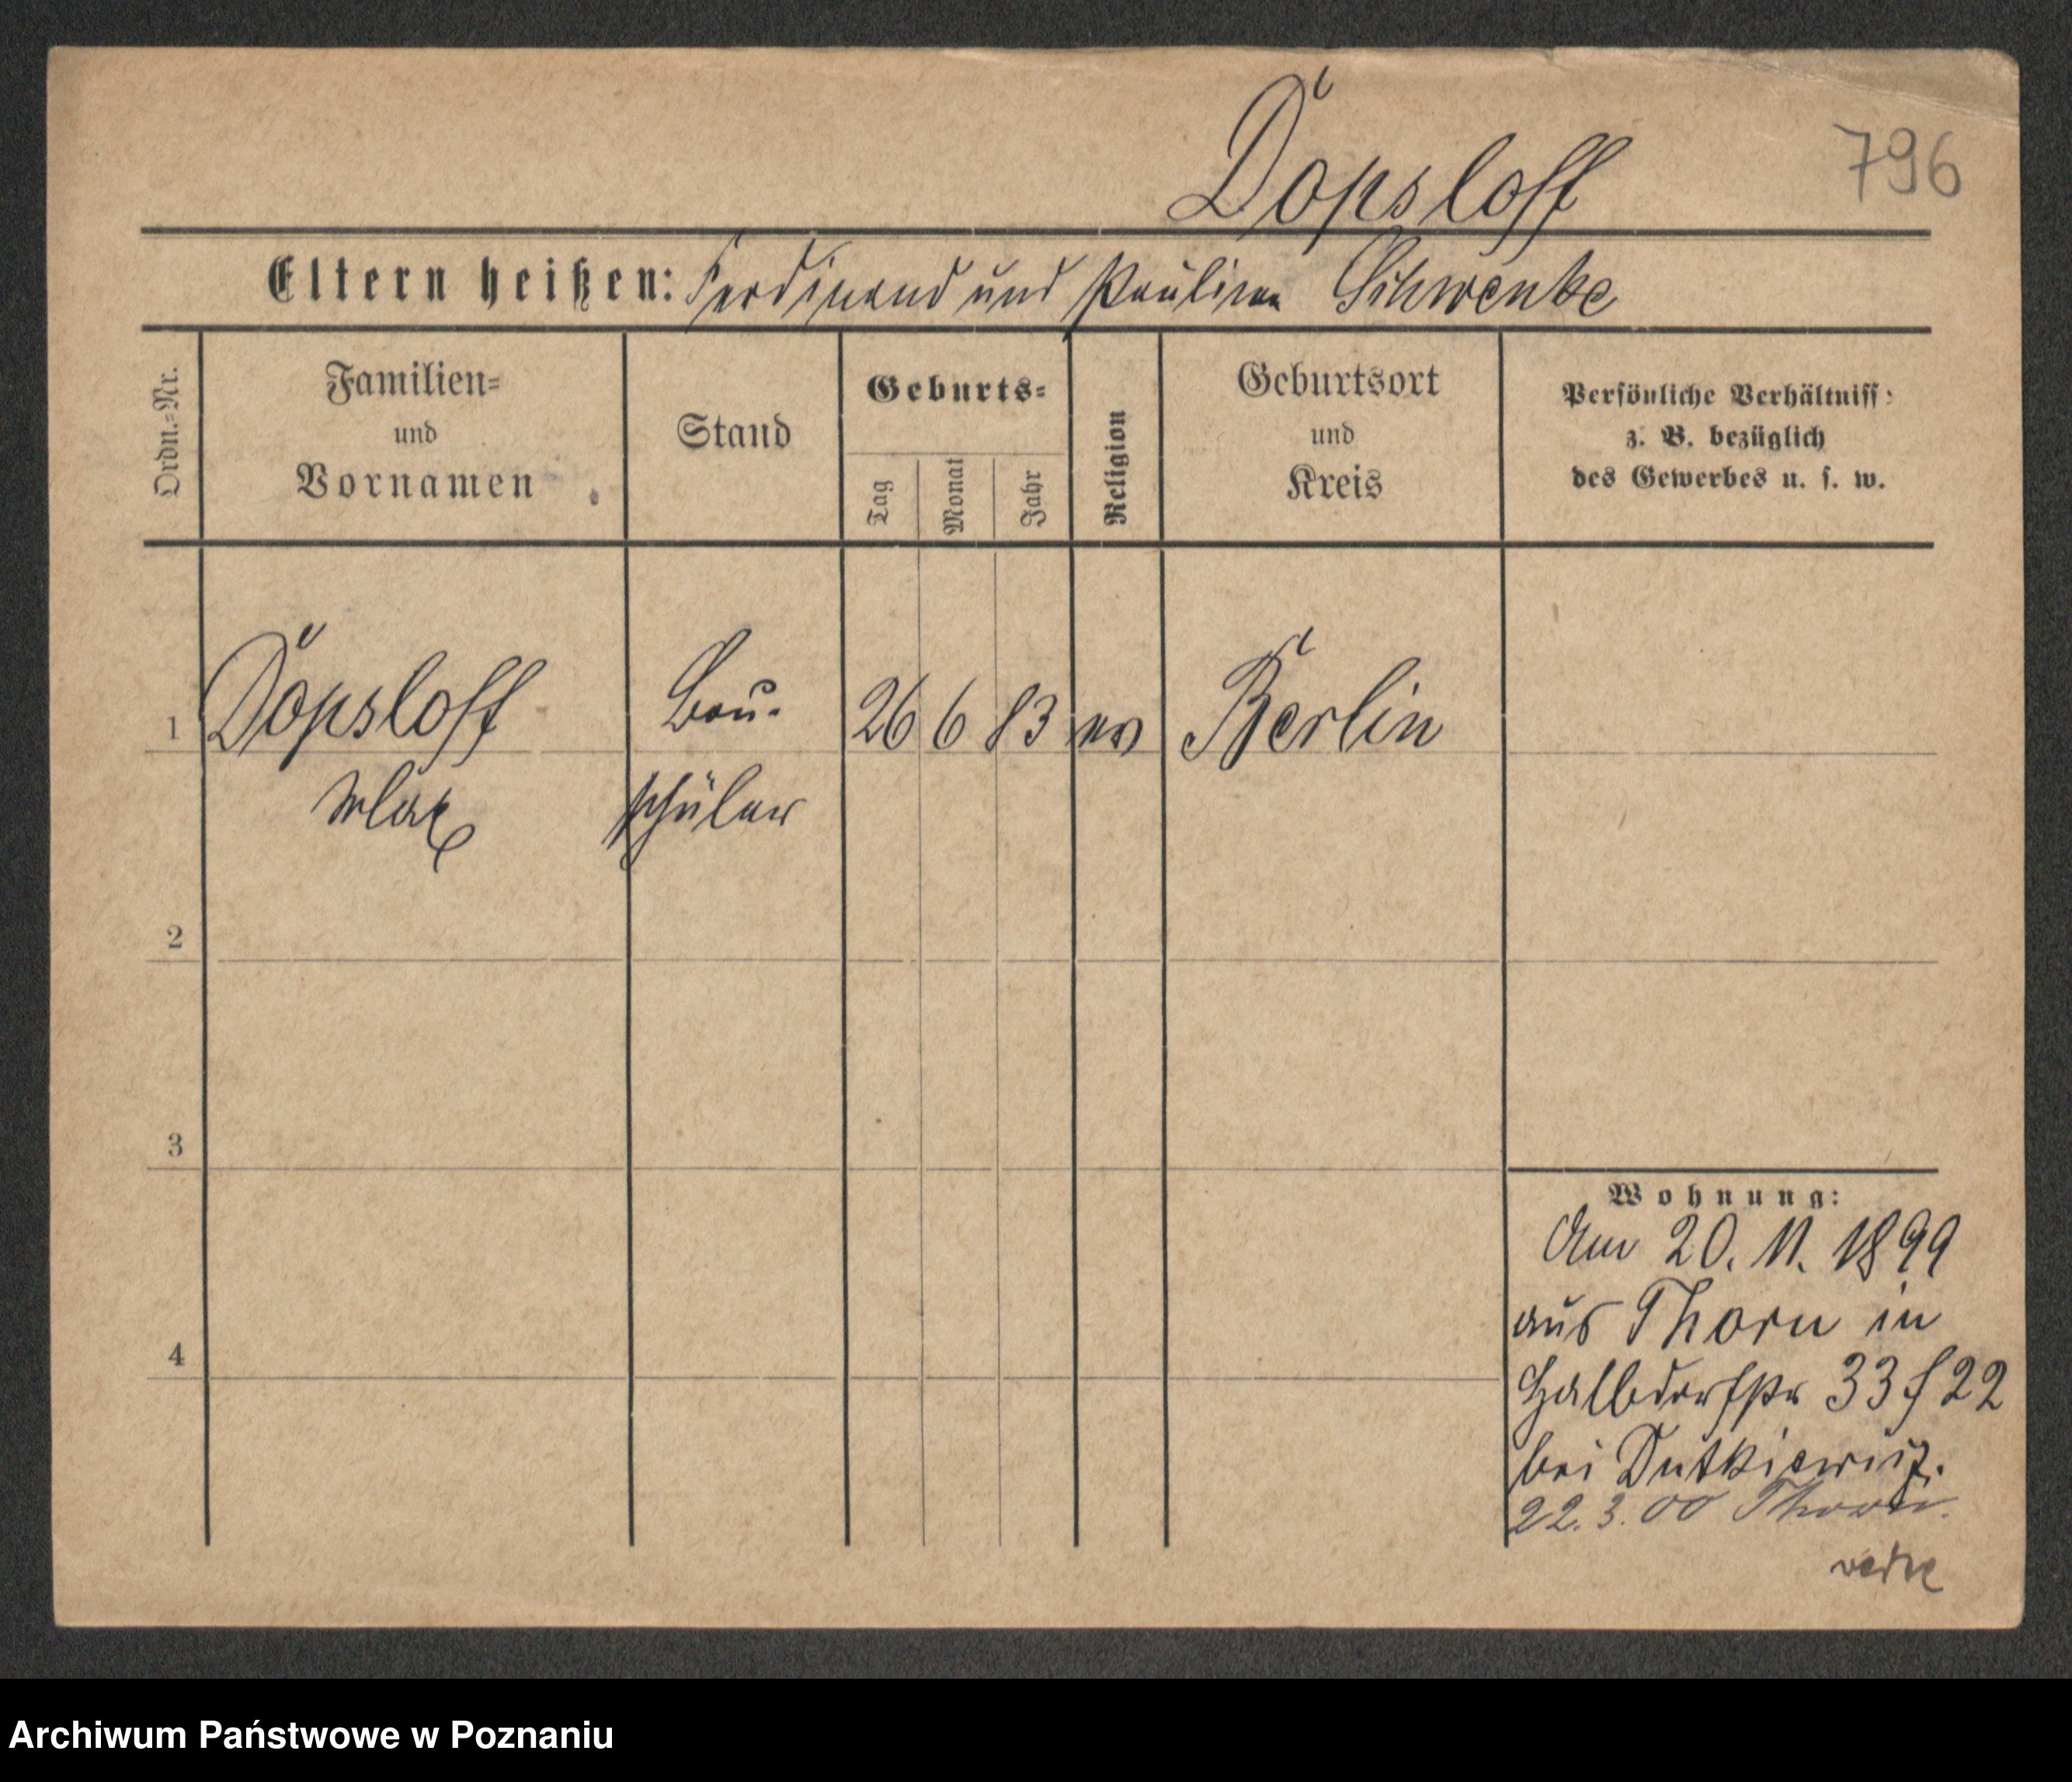 Döpsloff
796
Eltern heißen: Ferdinand und Pauline Schwenke
Ordn.=Nr.
Familien=
und
Vornamen
Stand
Geburts=
Tag
Monat
Jahr
Religion
Geburtsort
und
Kreis
Persönliche Verhältniss
z. B. bezüglich
des Gewerbes u. s. w.
1 Döpsloff Bau- 26 6 83 ev Berlin
Max schüler
2
3
4
Wohnung:
Am 20. 11. 1899
aus Thorn in
Halbdorfstr 33 f 22
bei Dutkiewicz.
22. 3. 00 Thorn.
Archiwum Państwowe w Poznaniu